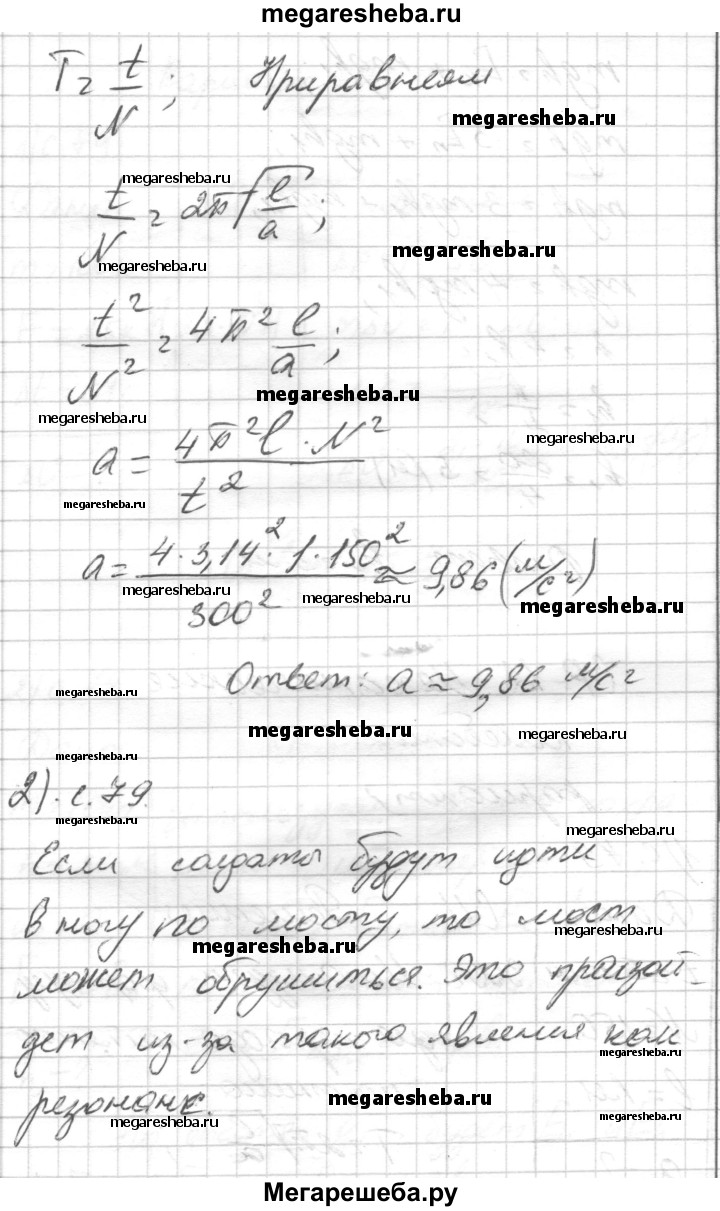 megaresheba.ru
T = t/N ; Приравняем
megaresheba.ru
megaresheba.ru
t/N = 2π√(l/a) ;
megaresheba.ru
megaresheba.ru
t²/N² = 4π² l/a ;
megaresheba.ru
megaresheba.ru
megaresheba.ru
a = 4π²l · N² / t²
megaresheba.ru
a = 4 · 3,14² · 1 · 150² / 300² ≈ 9,86 (м/с²)
megaresheba.ru
megaresheba.ru
megaresheba.ru
Ответ: a ≈ 9,86 м/с²
megaresheba.ru
megaresheba.ru
megaresheba.ru
2). с. 79.
megaresheba.ru
megaresheba.ru
Если солдаты будут идти
в ногу по мосту, то мост
megaresheba.ru
megaresheba.ru
может обрушиться. Это произой-
дет из-за такого явления как
megaresheba.ru
резонанс.
megaresheba.ru
megaresheba.ru
megaresheba.ru
Мегарешеба.ру